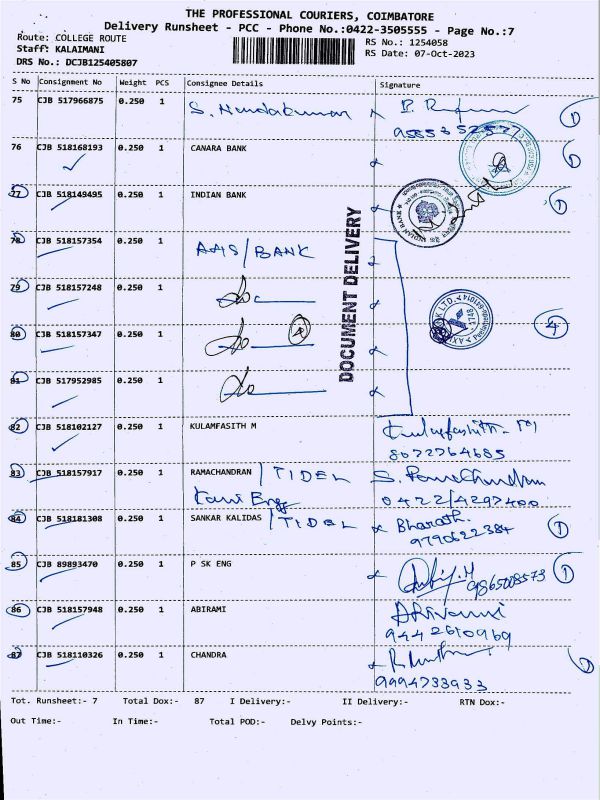 THE PROFESSIONAL COURIERS, COIMBATORE
Delivery Runsheet - PCC - Phone No.:0422-3505555 - Page No.:7
Route: COLLEGE ROUTE
RS No.: 1254058
Staff: KALAIMANI
RS Date: 07-Oct-2023
DRS No.: DCJB125405807
S No Consignment No Weight PCS Consignee Details Signature
75 CJB 517966875 0.250 1 S. Nandakumar
76 CJB 518168193 0.250 1 CANARA BANK
77 CJB 518149495 0.250 1 INDIAN BANK
78 CJB 518157354 0.250 1 AXIS/BANK
79 CJB 518157248 0.250 1 Do
80 CJB 518157347 0.250 1 Do 4
81 CJB 517952985 0.250 1 Do
DOCUMENT DELIVERY
82 CJB 518102127 0.250 1 KULAMFASITH M Kulamfasith. M
8072764685
83 CJB 518157917 0.250 1 RAMACHANDRAN / TIDEL S. Ramachandran
0422/4297400
84 CJB 518181308 0.250 1 SANKAR KALIDAS / TIDEL Bharath. 1
9790622384
85 CJB 89893470 0.250 1 P SK ENG 1
9865008573
86 CJB 518157948 0.250 1 ABIRAMI
9442610969
87 CJB 518110326 0.250 1 CHANDRA
9994733933
Tot. Runsheet:- 7 Total Dox:- 87 I Delivery:- II Delivery:- RTN Dox:-
Out Time:- In Time:- Total POD:- Delvy Points:-